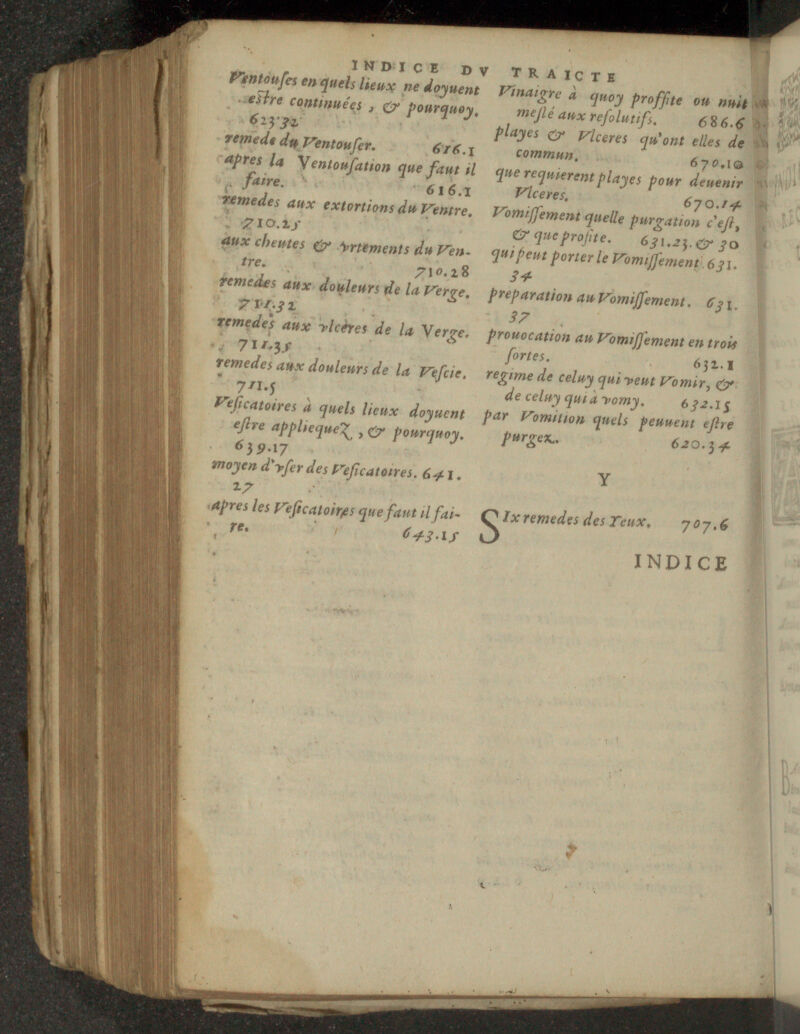 INDICE DV TRAICTE
Ventouses en quels lieux ne doyuent
estre continuées, & pourquoy.
623.32
remede du Ventouser. 616.1
apres la Ventousation que faut il
faire. 616.1
remedes aux extortions du Ventre.
710.25
aux cheutes & vrtements du Ven-
tre. 710.28
remedes aux douleurs de la Verge.
711.32
remedes aux vlcères de la Verge.
711.35
remedes aux douleurs de la Vescie.
711.5
Vesicatoires à quels lieux doyuent
estre appliequez, & pourquoy.
639.17
moyen d'vser des Vesicatoires. 641.
27
apres les Vesicatoires que faut il fai-
re. 643.15
Vinaigre à quoy proffite ou nuit
meslé aux resolutifs. 686.6
playes & Vlceres qu'ont elles de
commun. 670.10
que requierent playes pour deuenir
Vlceres. 670.14
Vomissement quelle purgation c'est,
& que profite. 631.23. & 30
qui peut porter le Vomissement. 631.
34
preparation au Vomissement. 631.
37
prouocation au Vomissement en trois
sortes. 632.1
regime de celuy qui veut Vomir, &
de celuy qui a vomy. 632.15
par Vomition quels peuuent estre
purgez. 620.34
Y
SIx remedes des Yeux. 707.6
INDICE